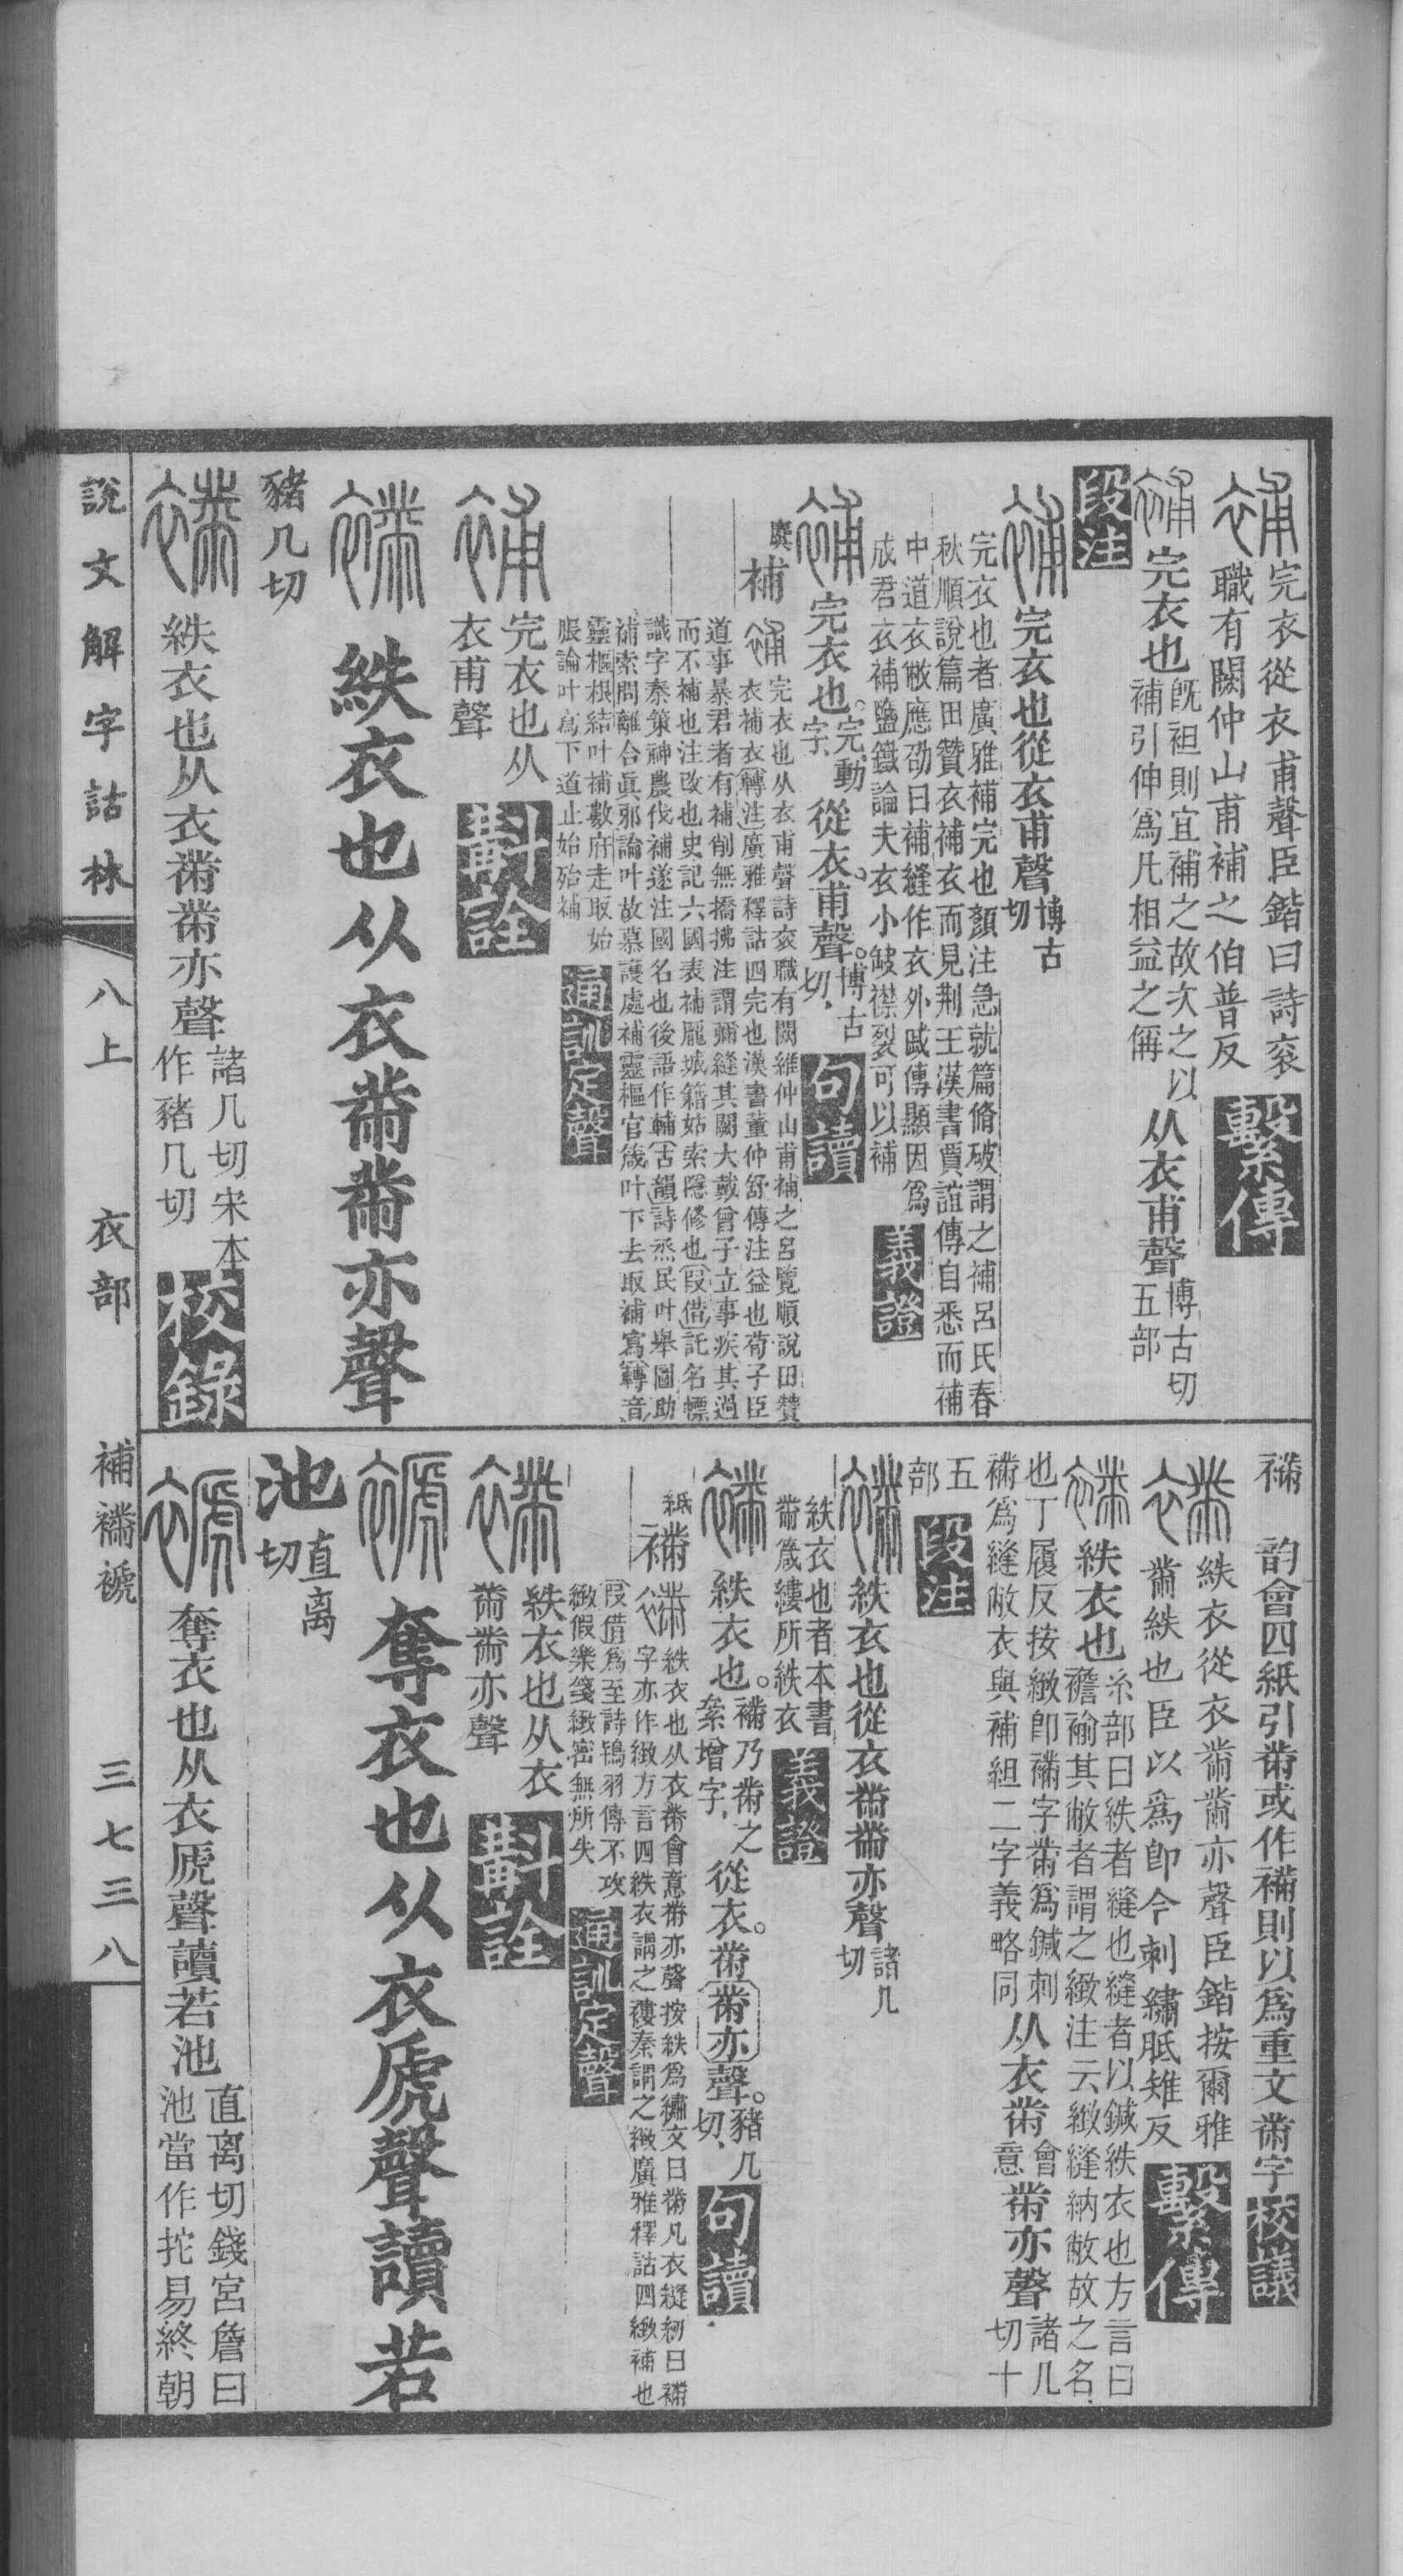 完衣從衣甫聲臣鍇曰詩衮
職有闕仲山甫補之伯普反
繫傳
完衣也
既袒則宜補之故次之以
補引伸爲凡相益之偁
从衣甫聲
博古切
五部
段注
完衣也從衣甫聲
博古
切
完衣也者廣雅補完也顏注急就篇脩破謂之補呂氏春
秋順說篇田贊衣補衣而見荆王漢書賈誼傳自悉而補
中道衣敝應劭曰補縫作衣外戚傳顯因爲
成君衣補鹽鐵論夫衣小皴襟裂可以補
義證
完衣也。
完、動
字、
從衣。甫聲。
博古
切、
句讀
補
完衣也从衣甫聲詩衮職有闕維仲山甫補之呂覽順說田贊
衣補衣(轉注)廣雅釋詁四完也漢書董仲舒傳注益也荀子臣
道事暴君者有補削無撟拂注謂彌縫其闕大戴曾子立事疾其過
而不補也注改也史記六國表補龐城籍姑索隱修也(叚借)託名幖
識字秦策神農伐補遂注國名也後語作輔(古韻)詩烝民叶舉圖助
補索問離合眞邪論叶故慕護處補靈樞官箴叶下去取補寫(轉音)
靈樞根結叶補數府走取始
脹論叶爲下道止始殆補
通訓定聲
完衣也从
衣甫聲
斠詮
紩衣也从衣黹黹亦聲
豬几切
紩衣也从衣黹黹亦聲
諸几切宋本
作豬几切
校錄
說文解字詁林
八上
衣部
補襧褫
三七三八
襧
韵會四紙引黹或作襧則以爲重文黹字
校議
紩衣從衣黹黹亦聲臣鍇按爾雅
黹紩也臣以爲卽今刺繡胝雉反
繫傳
紩衣也
糸部曰紩者縫也縫者以鍼紩衣也方言曰
襜褕其敝者謂之緻注云緻縫納敝故之名、
也丁履反按緻卽襧字黹爲鍼刺
襧爲縫敝衣與補組二字義略同
从衣黹
會
意
黹亦聲
諸几
切十
五
部
段注
紩衣也從衣黹黹亦聲
諸几
切
紩衣也者本書
黹箴縷所紩衣
義證
紩衣也。
襧乃黹之
絫增字、
從衣。黹黹亦聲。
豬几
切、
句讀
紙
襧
紩衣也从衣黹會意黹亦聲按紩爲繡文曰黹凡衣縫紉曰襧
字亦作緻方言四紩衣謂之褸秦謂之緻廣雅釋詁四緻補也
(叚借)爲至詩鴇羽傳不攻
緻假樂箋緻密無所失
通訓定聲
紩衣也从衣
黹黹亦聲
斠詮
奪衣也从衣虒聲讀若
池
直离
切
奪衣也从衣虒聲讀若池
直离切錢宮詹曰
池當作拕易終朝